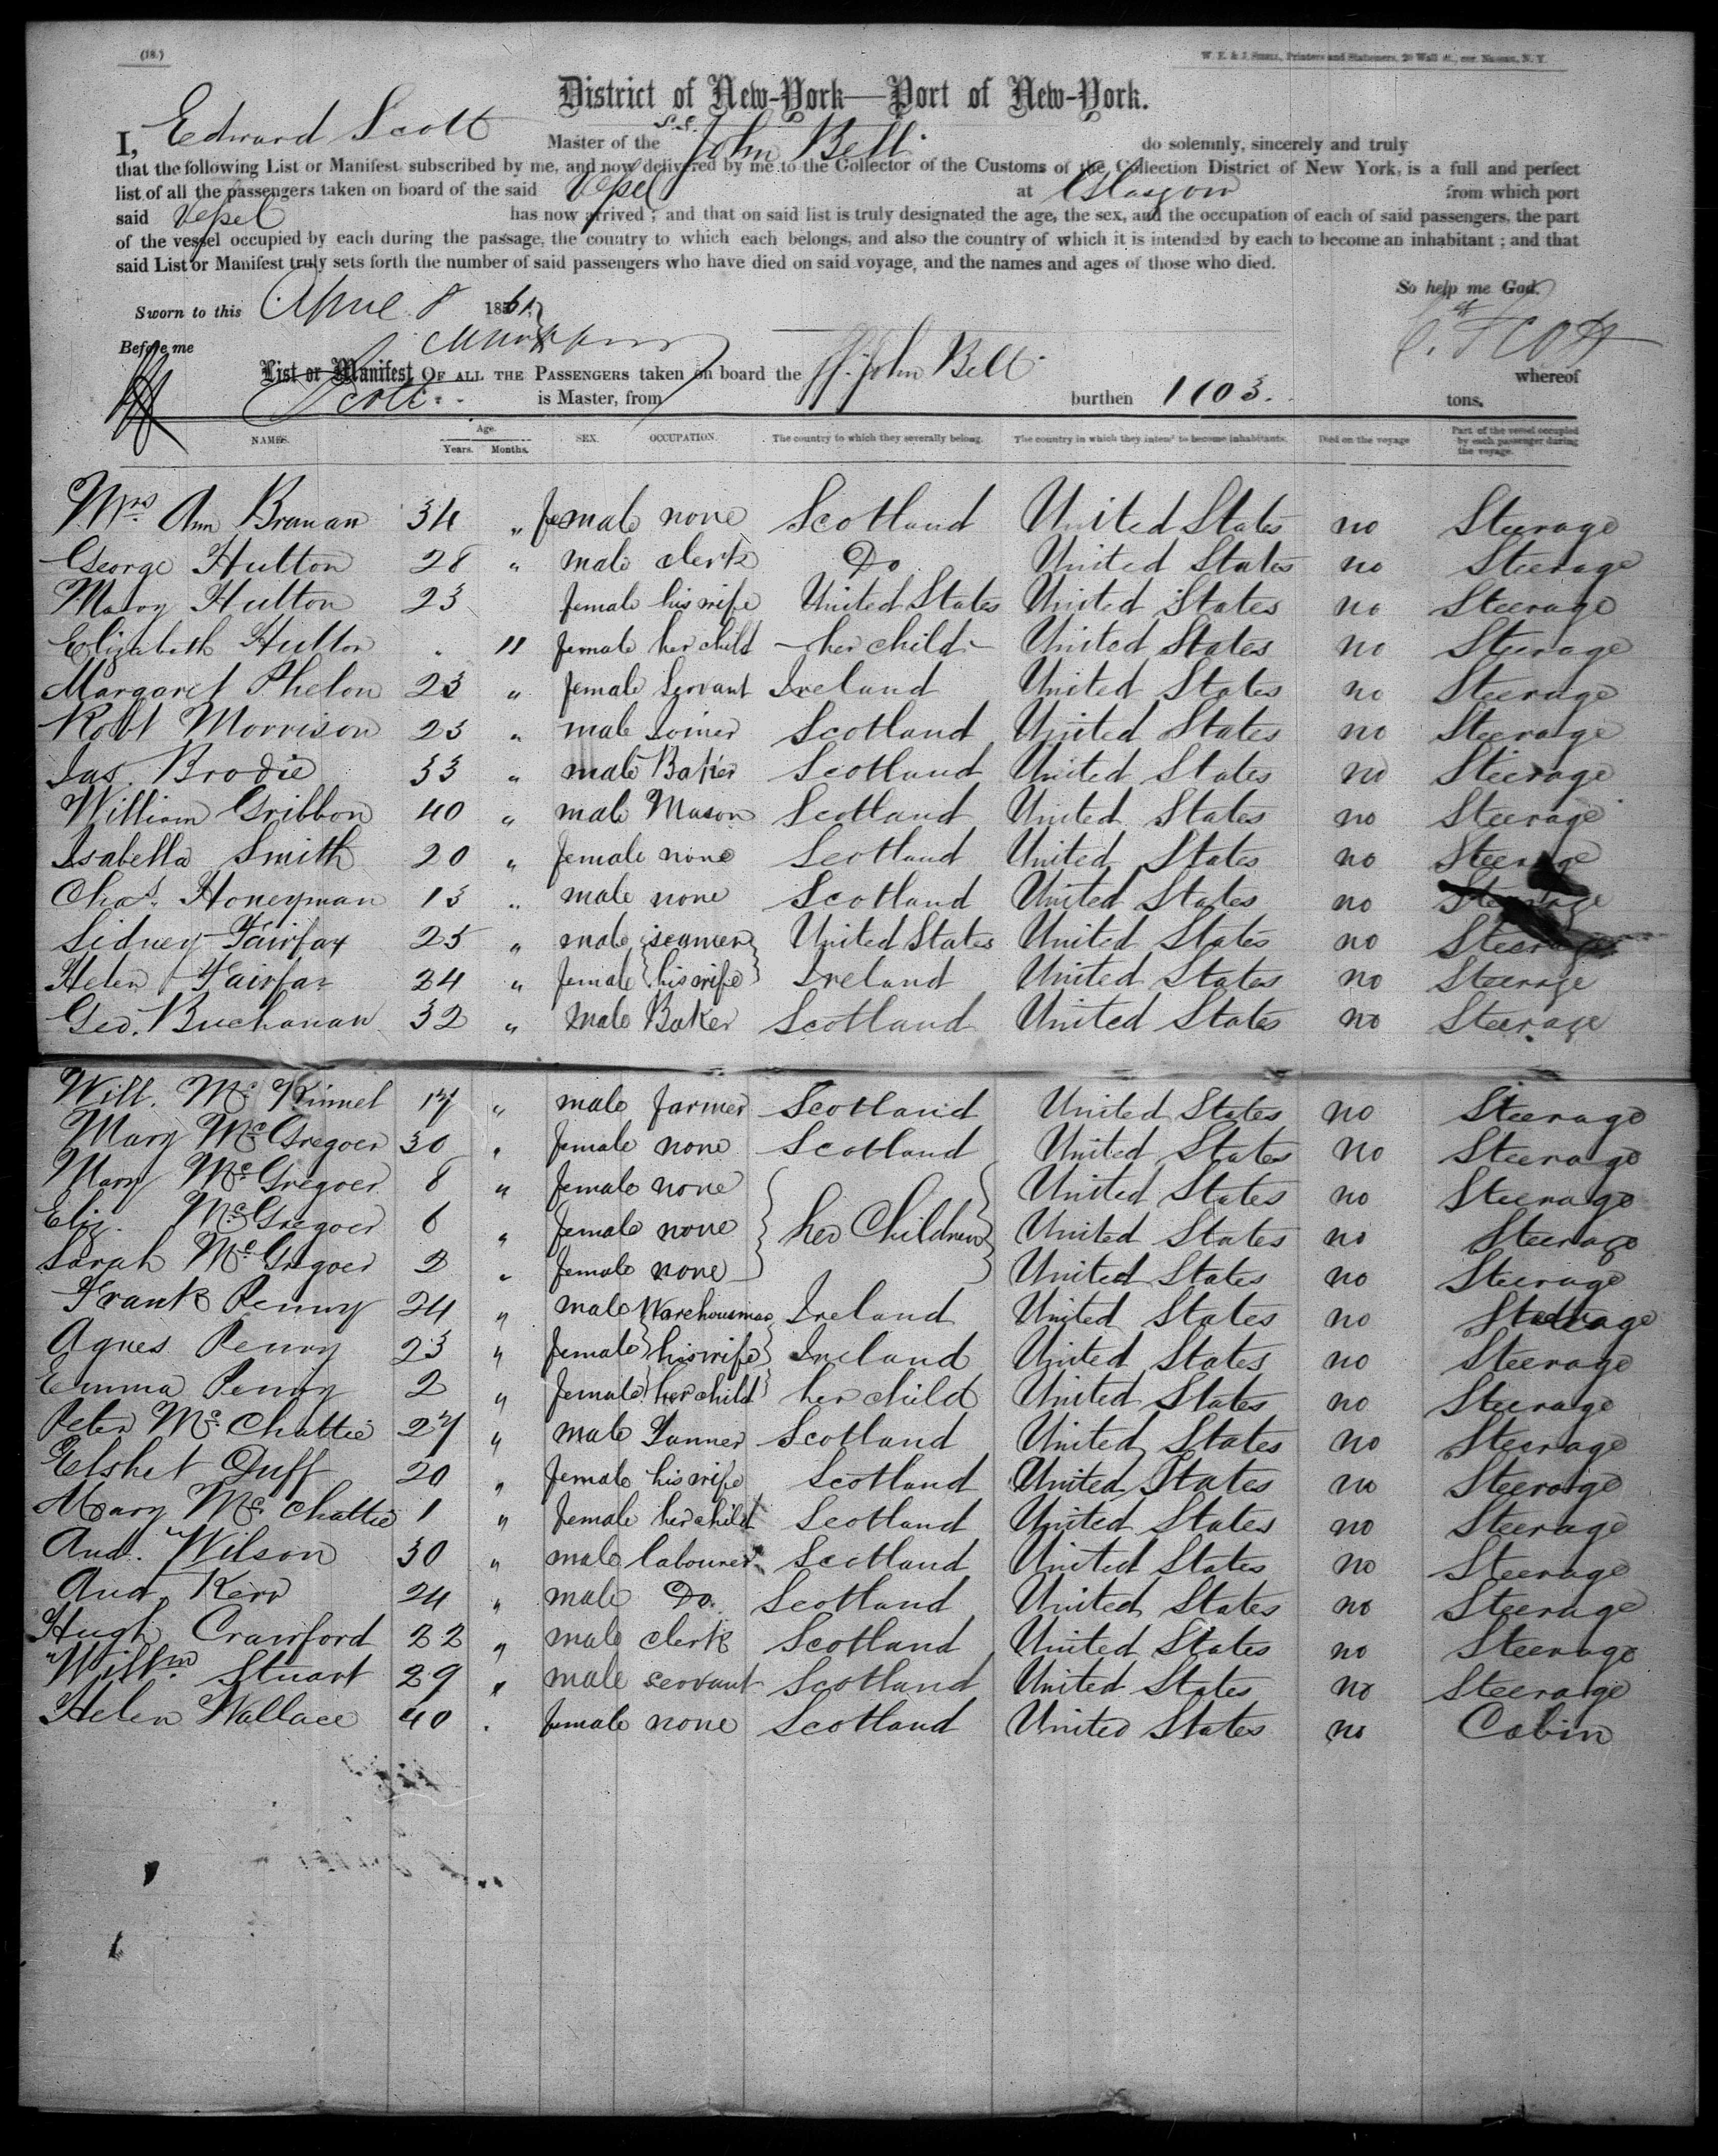 (18.)
W. E. & J. Sibell, Printers and Stationers, 20 Wall st., cor. Nassau, N. Y.
District of New-York—Port of New-York.
I, Edward Scott Master of the S.S. John Bell do solemnly, sincerely and truly
that the following List or Manifest subscribed by me, and now delivered by me to the Collector of the Customs of the Collection District of New York, is a full and perfect
list of all the passengers taken on board of the said Vessel at Glasgow from which port
said Vessel has now arrived; and that on said list is truly designated the age, the sex, and the occupation of each of said passengers, the part
of the vessel occupied by each during the passage, the country to which each belongs, and also the country of which it is intended by each to become an inhabitant; and that
said List or Manifest truly sets forth the number of said passengers who have died on said voyage, and the names and ages of those who died.
So help me God.
Sworn to this April 8 1861
E. Scott
Before me
List or Manifest OF ALL THE PASSENGERS taken on board the SS. John Bell whereof
Scott is Master, from burthen 1103. tons.
NAMES. Age. Years. Months. SEX. OCCUPATION. The country to which they severally belong. The country in which they intend to become inhabitants. Died on the voyage Part of the vessel occupied by each passenger during the voyage.
Mrs Ann Branan 34 " female none Scotland United States no Steerage
George Hutton 28 " male clerk Do United States no Steerage
Mary Hutton 23 female his wife United States United States no Steerage
Elizabeth Hutton . 11 female her child - her child - United States no Steerage
Margaret Phelon 23 " female Servant Ireland United States no Steerage
Robt Morrison 23 " male Joiner Scotland United States no Steerage
Jas. Brodie 33 " male Baker Scotland United States no Steerage
William Gribbon 40 " male Mason Scotland United States no Steerage
Isabella Smith 20 " female none Scotland United States no Steerage
Chas. Honeyman 13 " male none Scotland United States no Steerage
Sidney Fairfax 25 " male seamen United States United States no Steerage
Helen Fairfax 24 " female his wife Ireland United States no Steerage
Geo. Buchanan 32 " Male Baker Scotland United States no Steerage
Will. Mc Kinnel 17 " male farmer Scotland United States no Steerage
Mary McGregoer 30 " female none Scotland United States no Steerage
Mary McGregoer 8 " female none United States no Steerage
Eliz. McGregoer 6 " female none her Children United States no Steerage
Sarah McGregoer 2 " female none United States no Steerage
Frank Penny 24 " male Warehouseman Ireland United States no Steerage
Agnes Penny 23 " female his wife Ireland United States no Steerage
Emma Penny 2 " female her child her child United States no Steerage
Peter Mc Chattie 27 " male Tanner Scotland United States no Steerage
Elshet Duff 20 " female his wife Scotland United States no Steerage
Mary Mc Chattie 1 " female her child Scotland United States no Steerage
And. Wilson 30 " male labourer Scotland United States no Steerage
And. Kerr 24 " male Do. Scotland United States no Steerage
Hugh Crawford 22 " male clerk Scotland United States no Steerage
Willm Stuart 29 " male servant Scotland United States no Steerage
Helen Wallace 40 . female none Scotland United States no Cabin